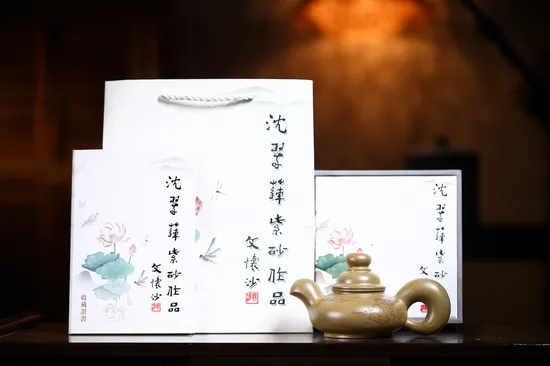 沈翠蘋紫砂佳品
文懷沙
收藏證書
沈翠蘋紫砂佳品
文懷沙
沈翠蘋紫砂佳品
文懷沙